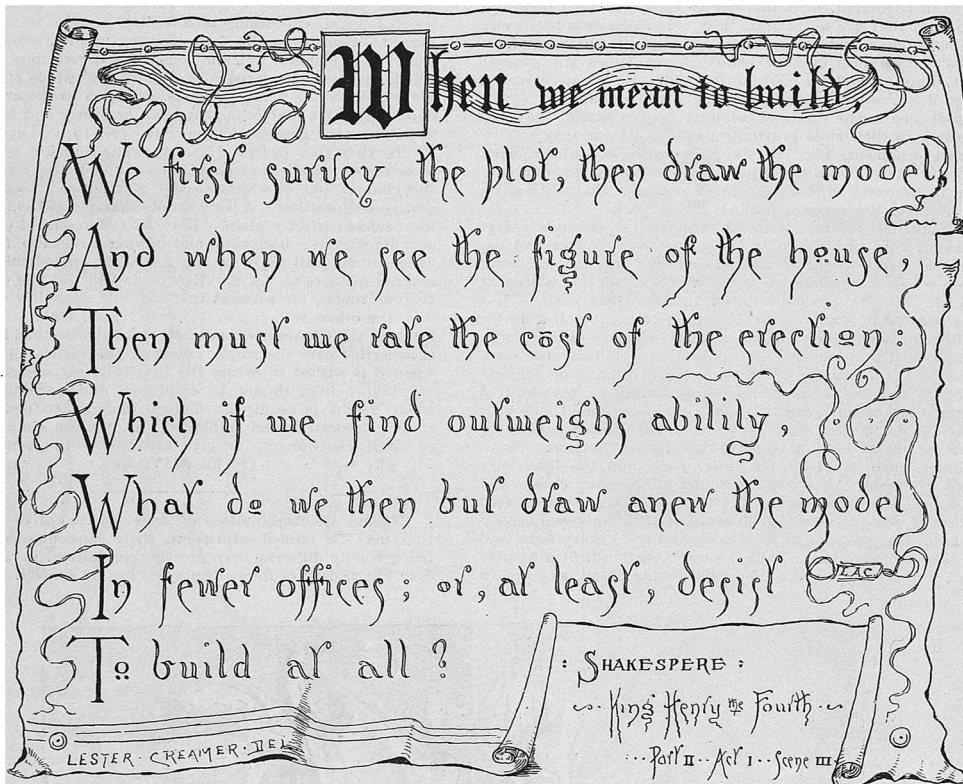 When we mean to build,
We first survey the plot, then draw the model,
And when we see the figure of the house,
Then must we rate the cost of the erection:
Which if we find outweighs ability,
What do we then but draw anew the model
In fewer offices; or, at least, desist
To build at all?
L.A.C.
: SHAKESPERE :
King Henry the Fourth
Part II · Act I · Scene III
LESTER · CREAMER · DEL